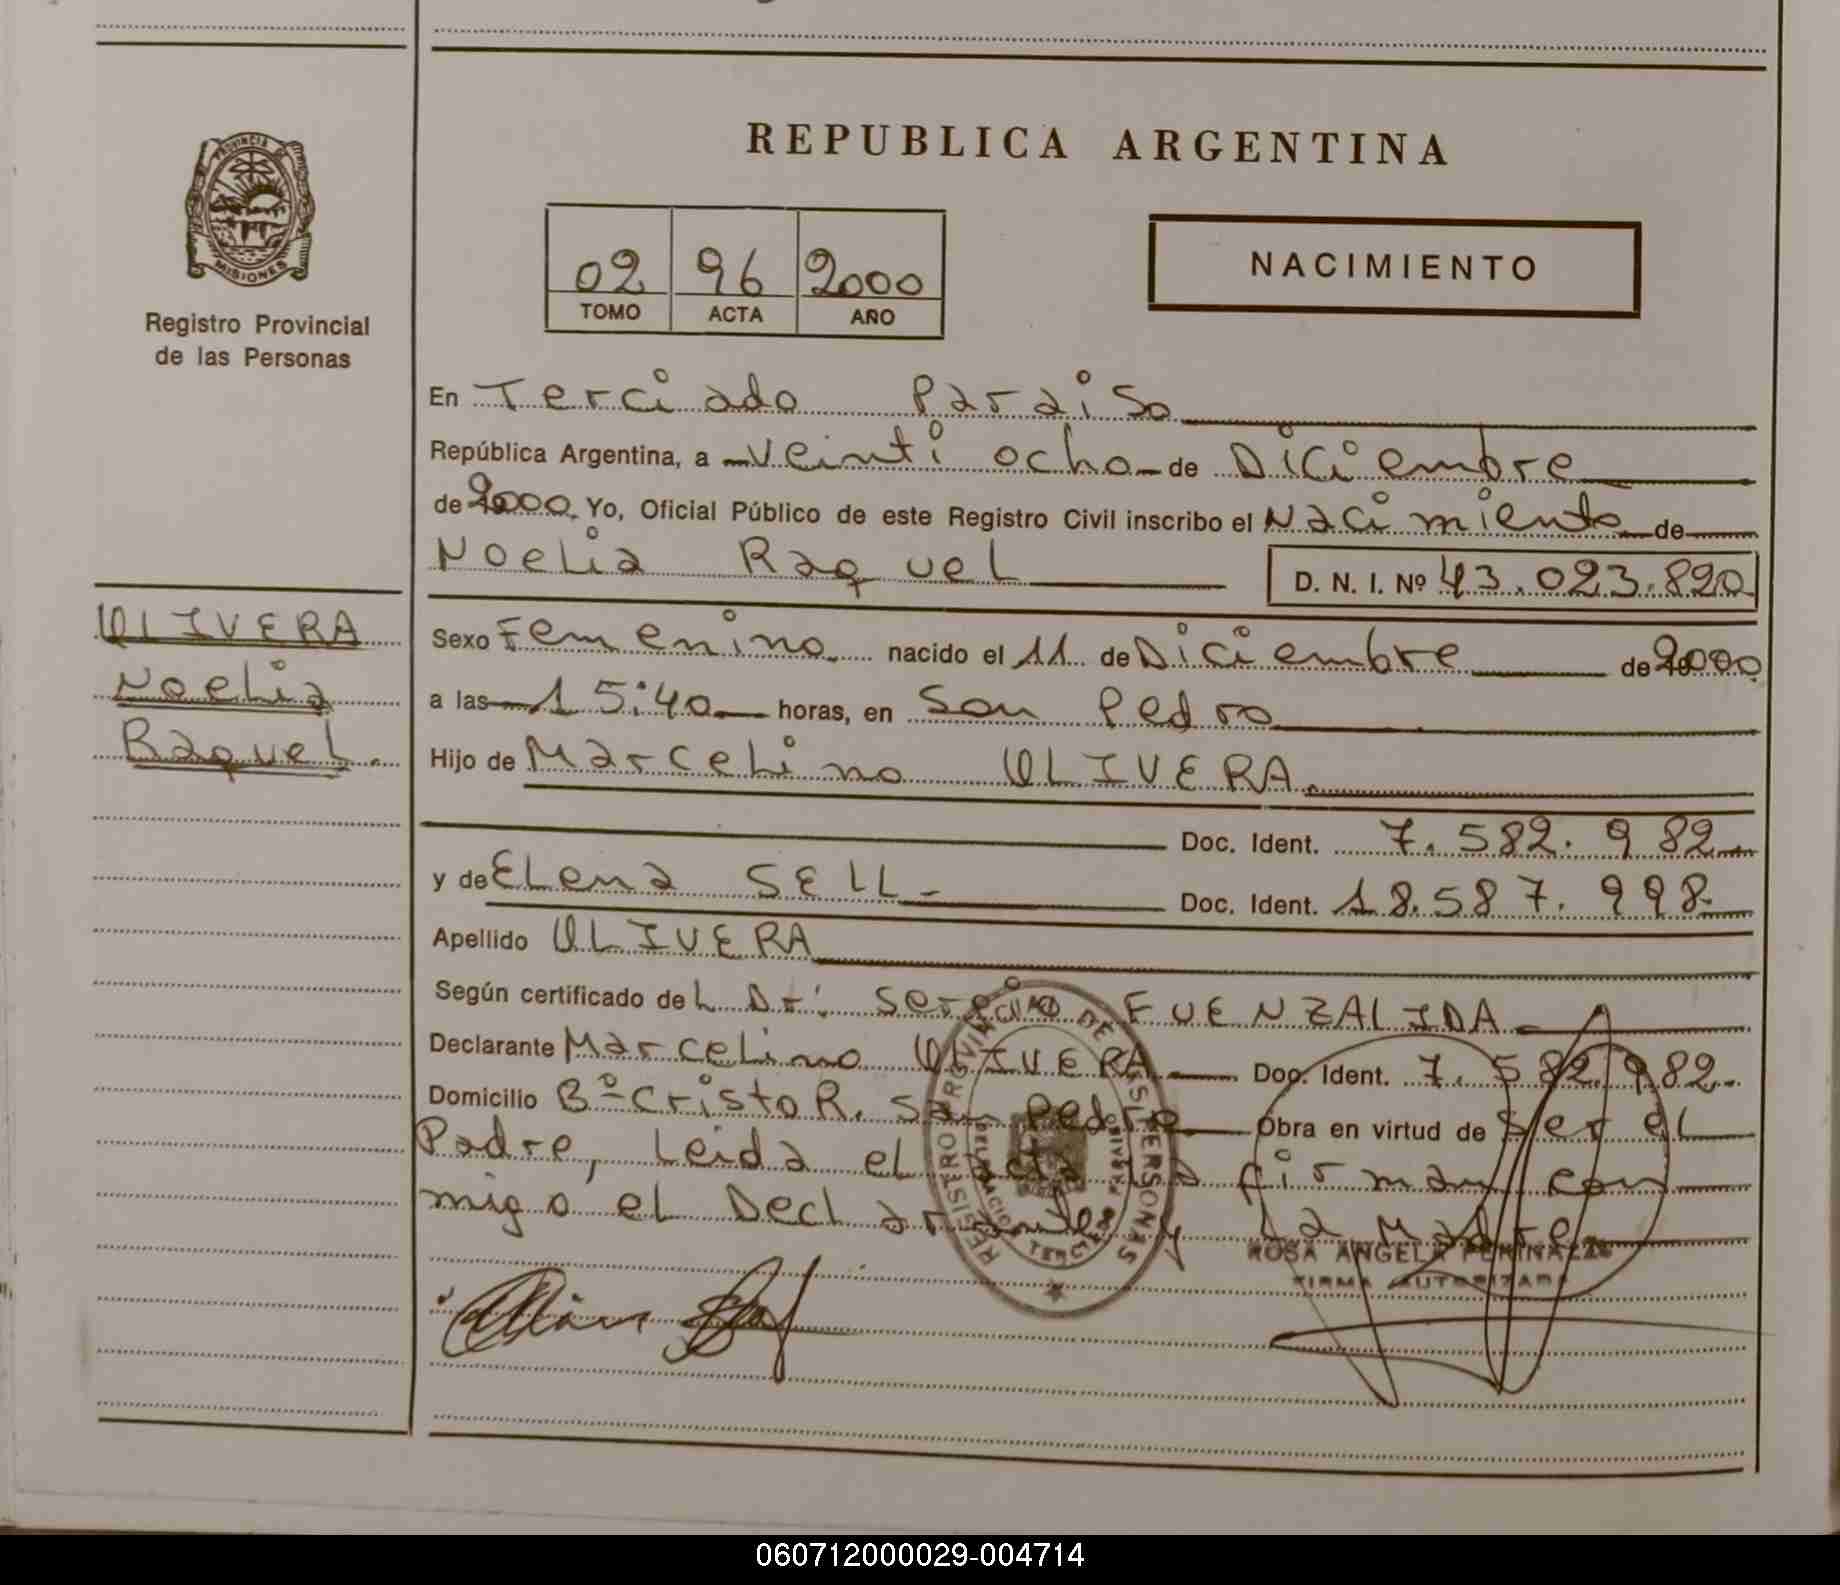 REPUBLICA ARGENTINA
PROVINCIA DE
MISIONES
Registro Provincial
de las Personas
02 96 2000
TOMO ACTA AÑO
NACIMIENTO
En Terciado Paraiso
República Argentina, a veinti ocho de Diciembre
de 2000 Yo, Oficial Público de este Registro Civil inscribo el Nacimiento de
Noelia Raquel D. N. I. Nº 43.023.820
OLIVERA
Noelia
Raquel.
Sexo Femenino nacido el 11 de Diciembre de 2000
a las 15:40 horas, en San Pedro
Hijo de Marcelino OLIVERA
Doc. Ident. 7.582.982
y de Elena SELL Doc. Ident. 18.587.998
Apellido OLIVERA
Según certificado del Dr: Sergio FUENZALIDA
Declarante Marcelino OLIVERA Doc. Ident. 7.582.982.
Domicilio Bº Cristo R. San Pedro Obra en virtud de ser el
Padre, Leida el acta la firman con
migo el Declarante y la Madre
REGISTRO PROVINCIAL DE LAS PERSONAS
ROSA ANGELA
FIRMA AUTORIZADA
060712000029-004714